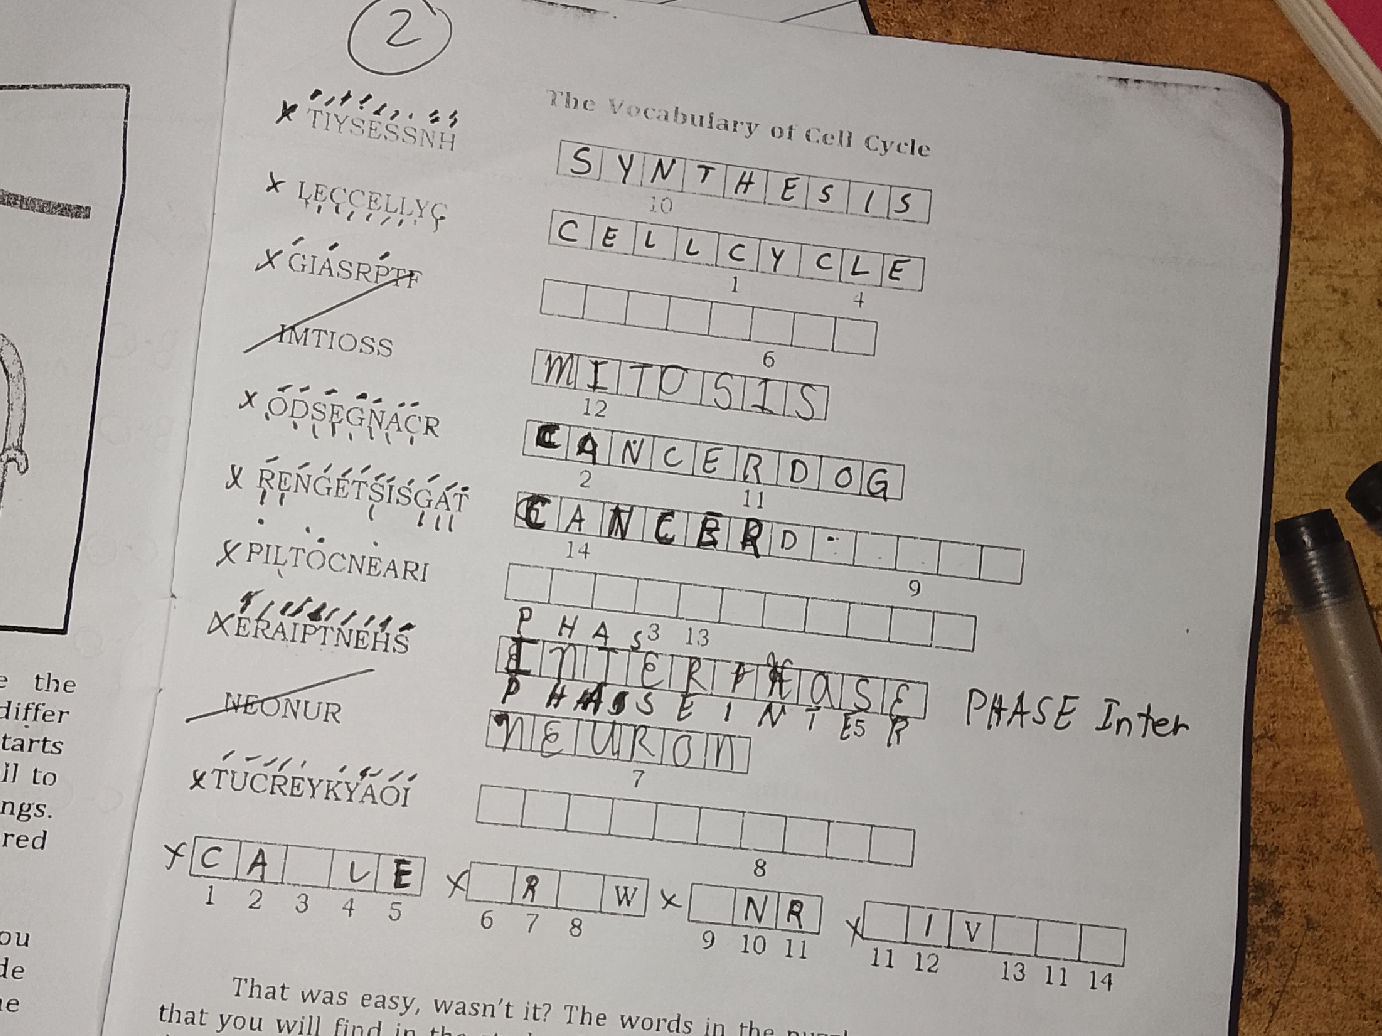 2
The Vocabulary of Cell Cycle
TIYSESSNH
SYNTHESIS
10
LECCELLYC
CELLCYCLE
1 4
GIASRPTF
6
IMTIOSS
MITOSIS
12
ODSEGNACR
CANCERDOG
2 11
RENGETSISGAT
CANCERD
14 9
PILTOCNEARI
3 13
PHAS
ERAIPTNEHS
INTERPHASE
PHASE Inter
NEONUR
NEURON
7
TUCREYKYAOI
8
CA LE R W NR IV
1 2 3 4 5 6 7 8 9 10 11 11 12 13 11 14
That was easy, wasn't it? The words in the
that you will find in
e the
differ
tarts
il to
ngs.
red
ou
de